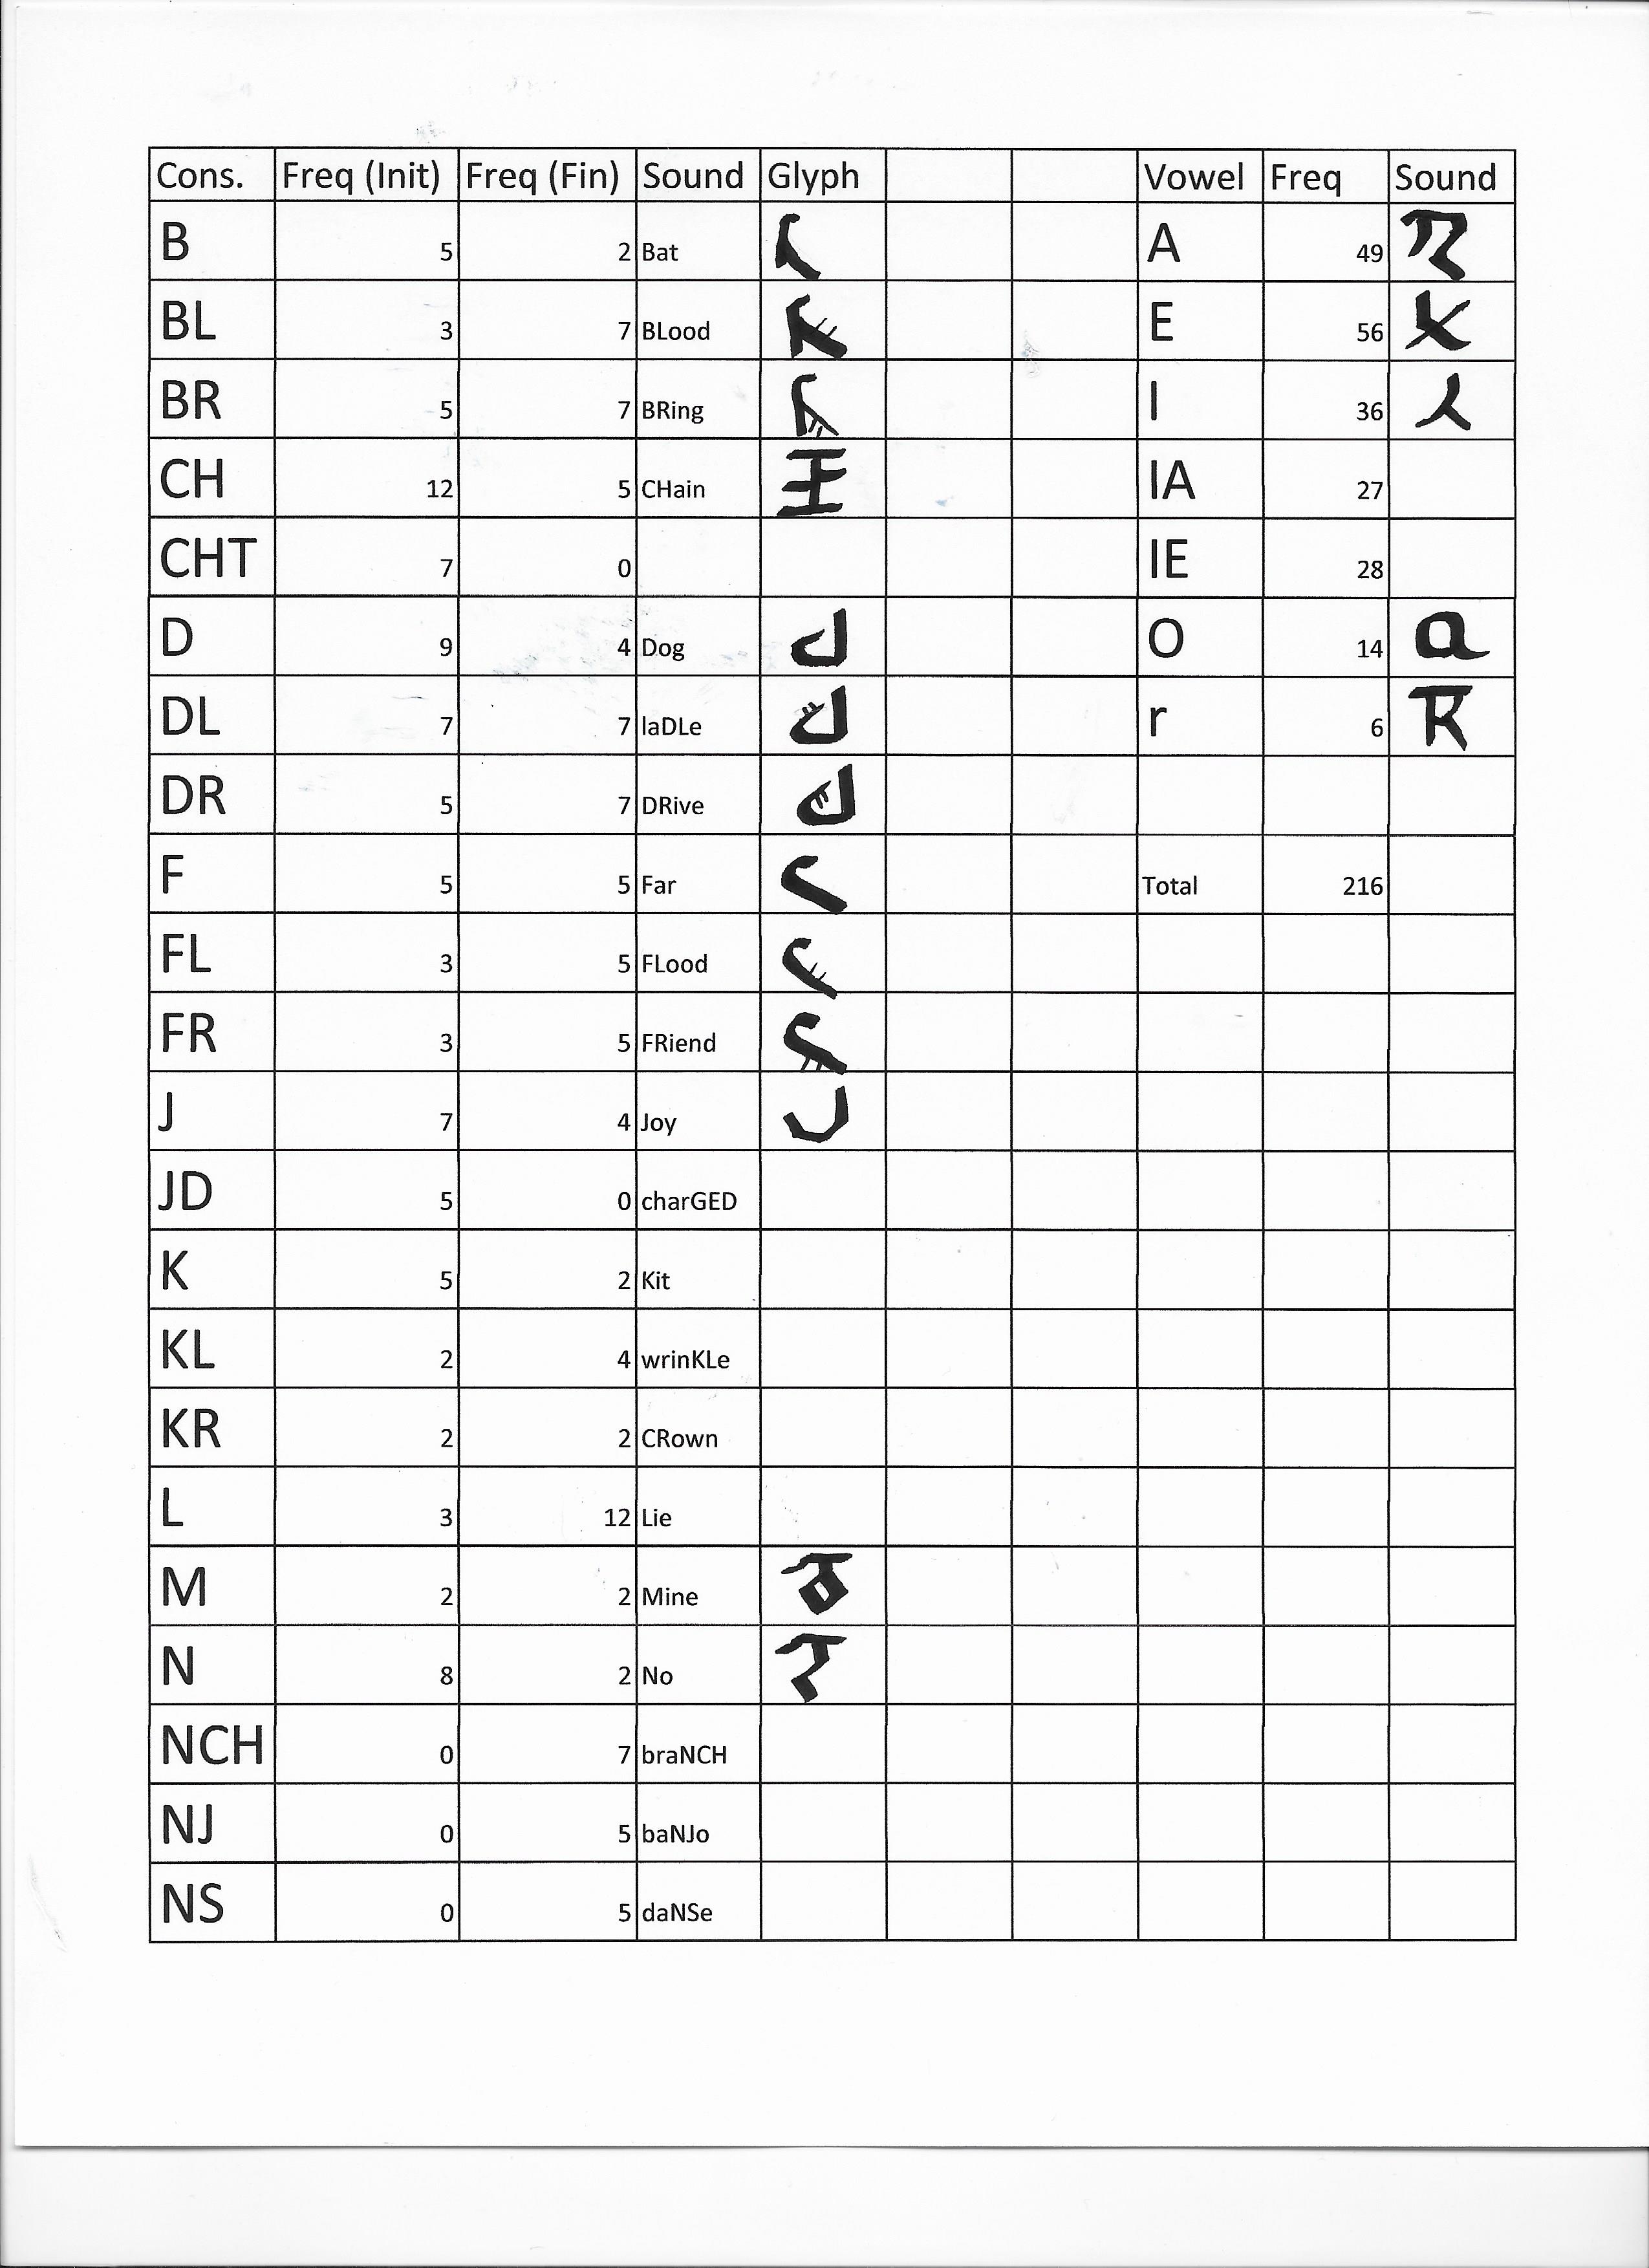 Cons. Freq (Init) Freq (Fin) Sound Glyph Vowel Freq Sound
B 5 2 Bat A 49
BL 3 7 BLood E 56
BR 5 7 BRing I 36
CH 12 5 CHain IA 27
CHT 7 0 IE 28
D 9 4 Dog O 14
DL 7 7 laDLe r 6
DR 5 7 DRive
F 5 5 Far Total 216
FL 3 5 FLood
FR 3 5 FRiend
J 7 4 Joy
JD 5 0 charGED
K 5 2 Kit
KL 2 4 wrinKLe
KR 2 2 CRown
L 3 12 Lie
M 2 2 Mine
N 8 2 No
NCH 0 7 braNCH
NJ 0 5 baNJo
NS 0 5 daNSe